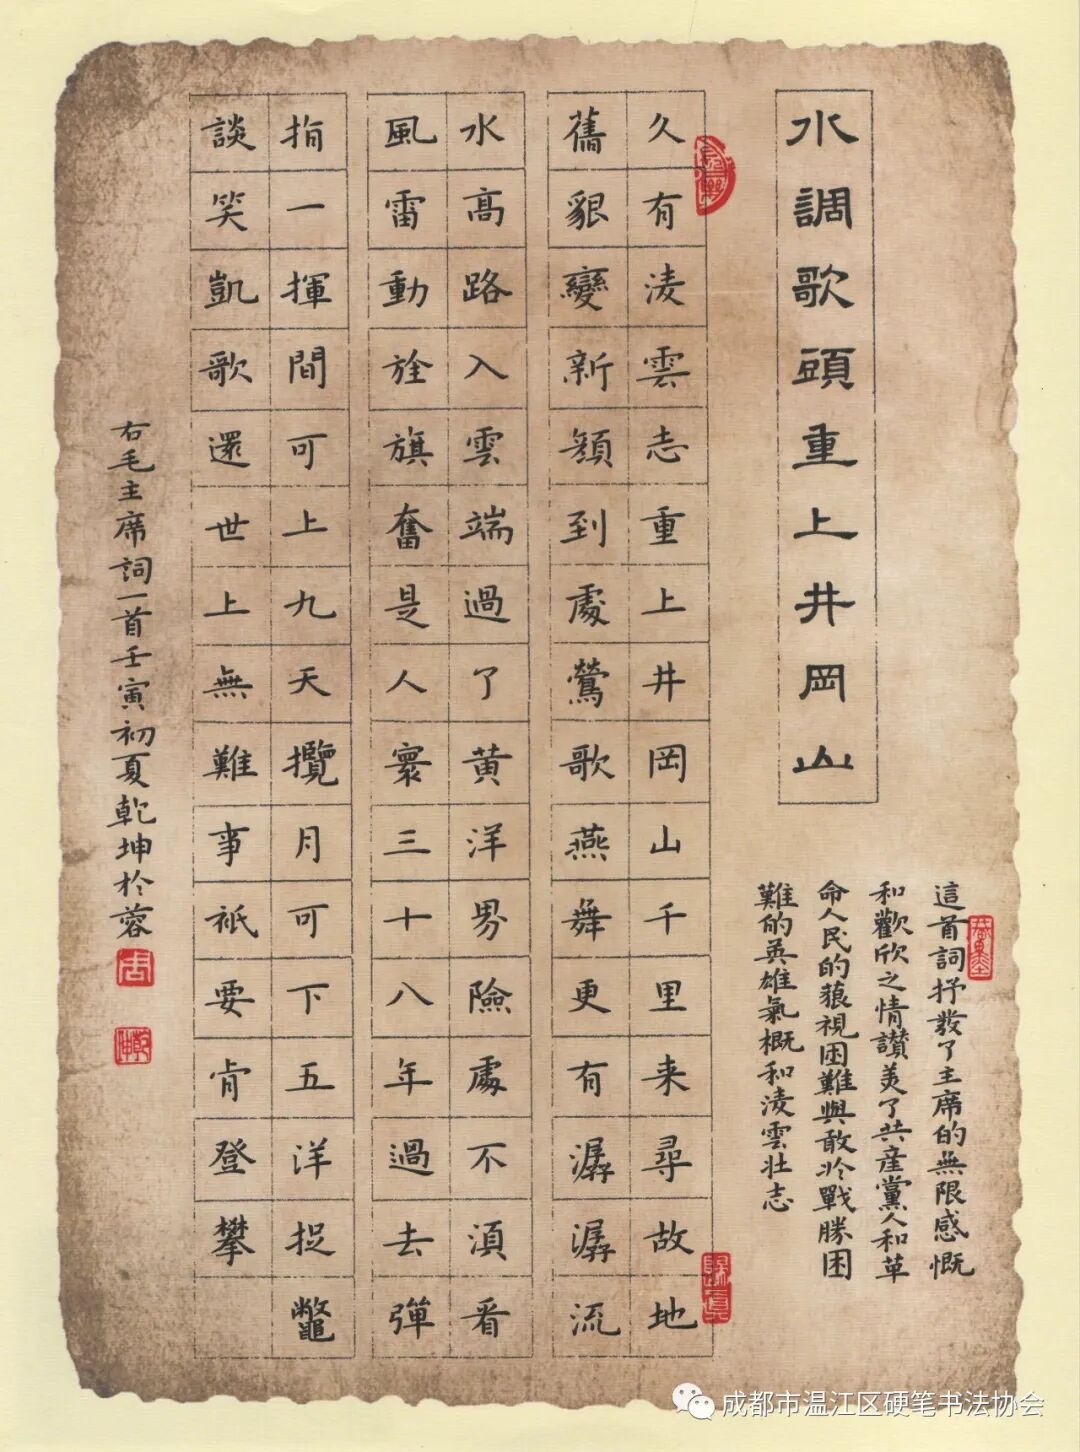 水調歌頭重上井岡山
這首詞抒發了主席的無限感慨
和歡欣之情讃美了共産黨人和革
命人民的藐視困難與敢於戰勝困
難的英雄氣概和淩雲壯志
久有淩雲志重上井岡山千里来尋故地
舊貌變新顔到處鶯歌燕舞更有潺潺流
水高路入雲端過了黄洋界險處不須看
風雷動旌旗奮是人寰三十八年過去彈
指一揮間可上九天攬月可下五洋捉鱉
談笑凱歌還世上無難事衹要肯登攀
右毛主席詞一首壬寅初夏乾坤於蓉
成都市温江区硬笔书法协会